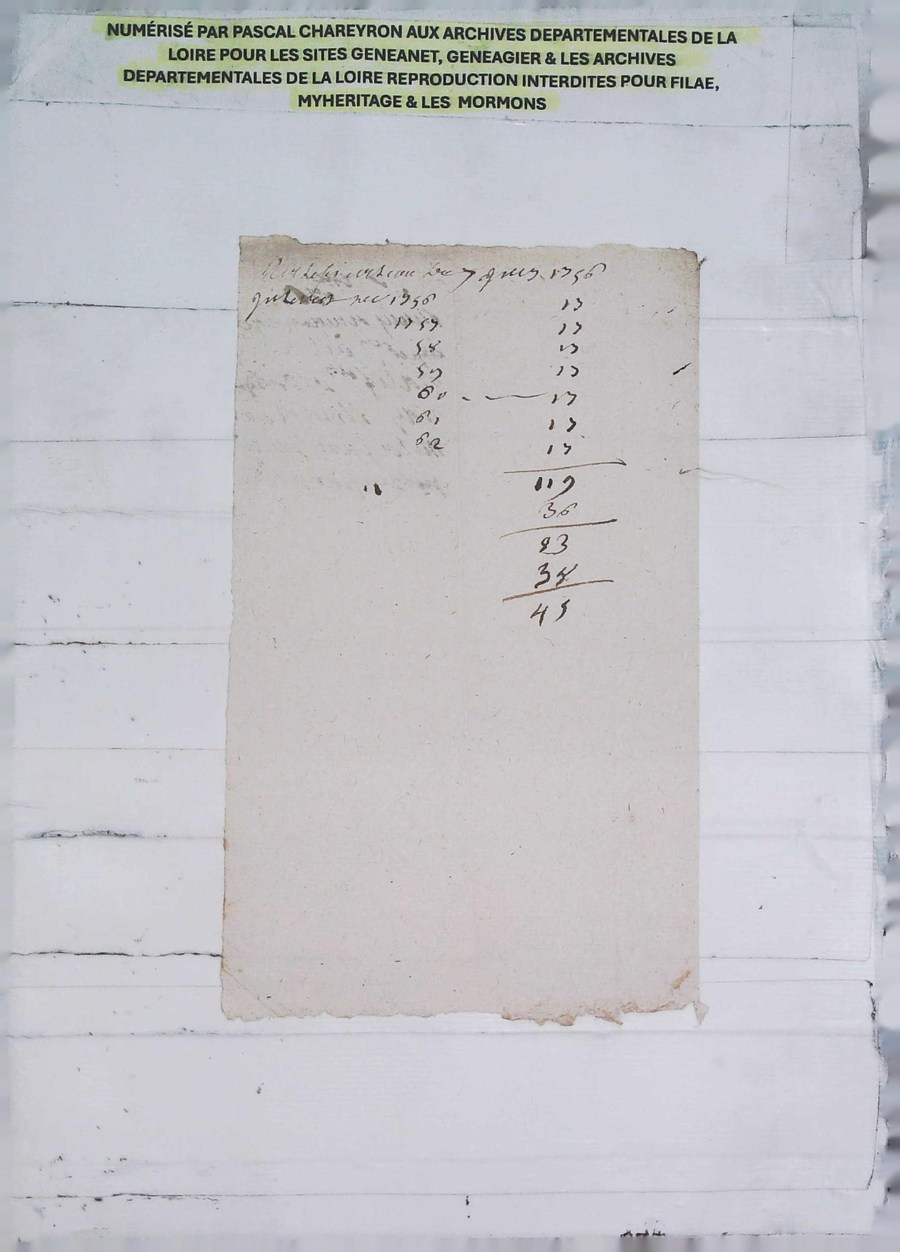 NUMÉRISÉ PAR PASCAL CHAREYRON AUX ARCHIVES DEPARTEMENTALES DE LA
LOIRE POUR LES SITES GENEANET, GENEAGIER & LES ARCHIVES
DEPARTEMENTALES DE LA LOIRE REPRODUCTION INTERDITES POUR FILAE,
MYHERITAGE & LES MORMONS
7 1756
1756 17
1757 17
58 17
59 17
60 17
61 17
62 17
119
36
83
38
45